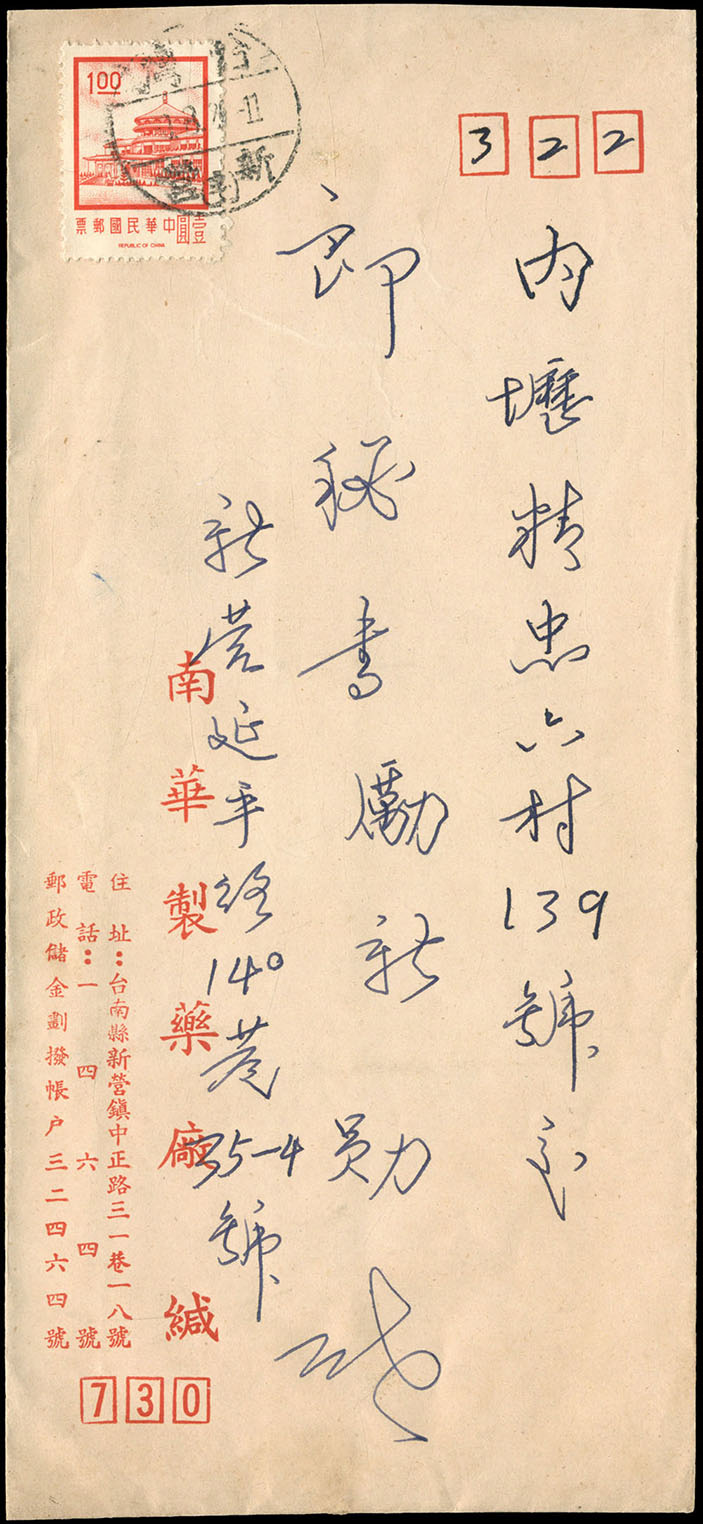 322
内壢精忠六村139號交
郎秘書勵新 勛
新營延平路140巷35-4號
南華製藥廠緘
住址：台南縣新營鎮中正路三一巷一八號
電話：一四六四號
郵政儲金劃撥帳户三二四六四號
730
1.00
中華民國郵票 壹圓
REPUBLIC OF CHINA
台灣
新營